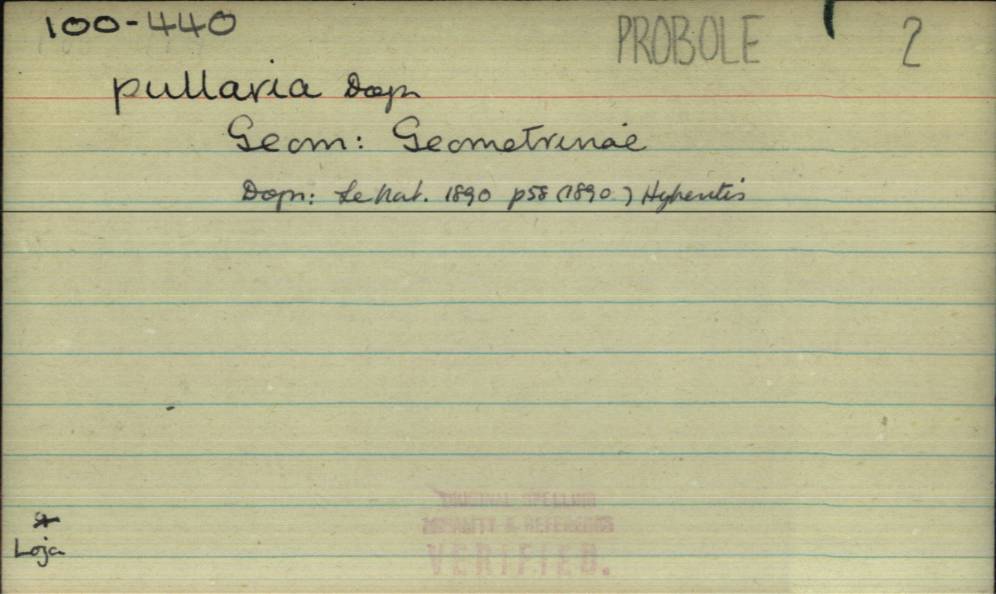 100-440
PROBOLE 2
pullaria Dogn
Geom: Geometrinae
Dogn: Le Nat. 1890 p58 (1890) Hyperetis
*
Loja
ORIGINAL SPELLING
& REFERENCE
VERIFIED.